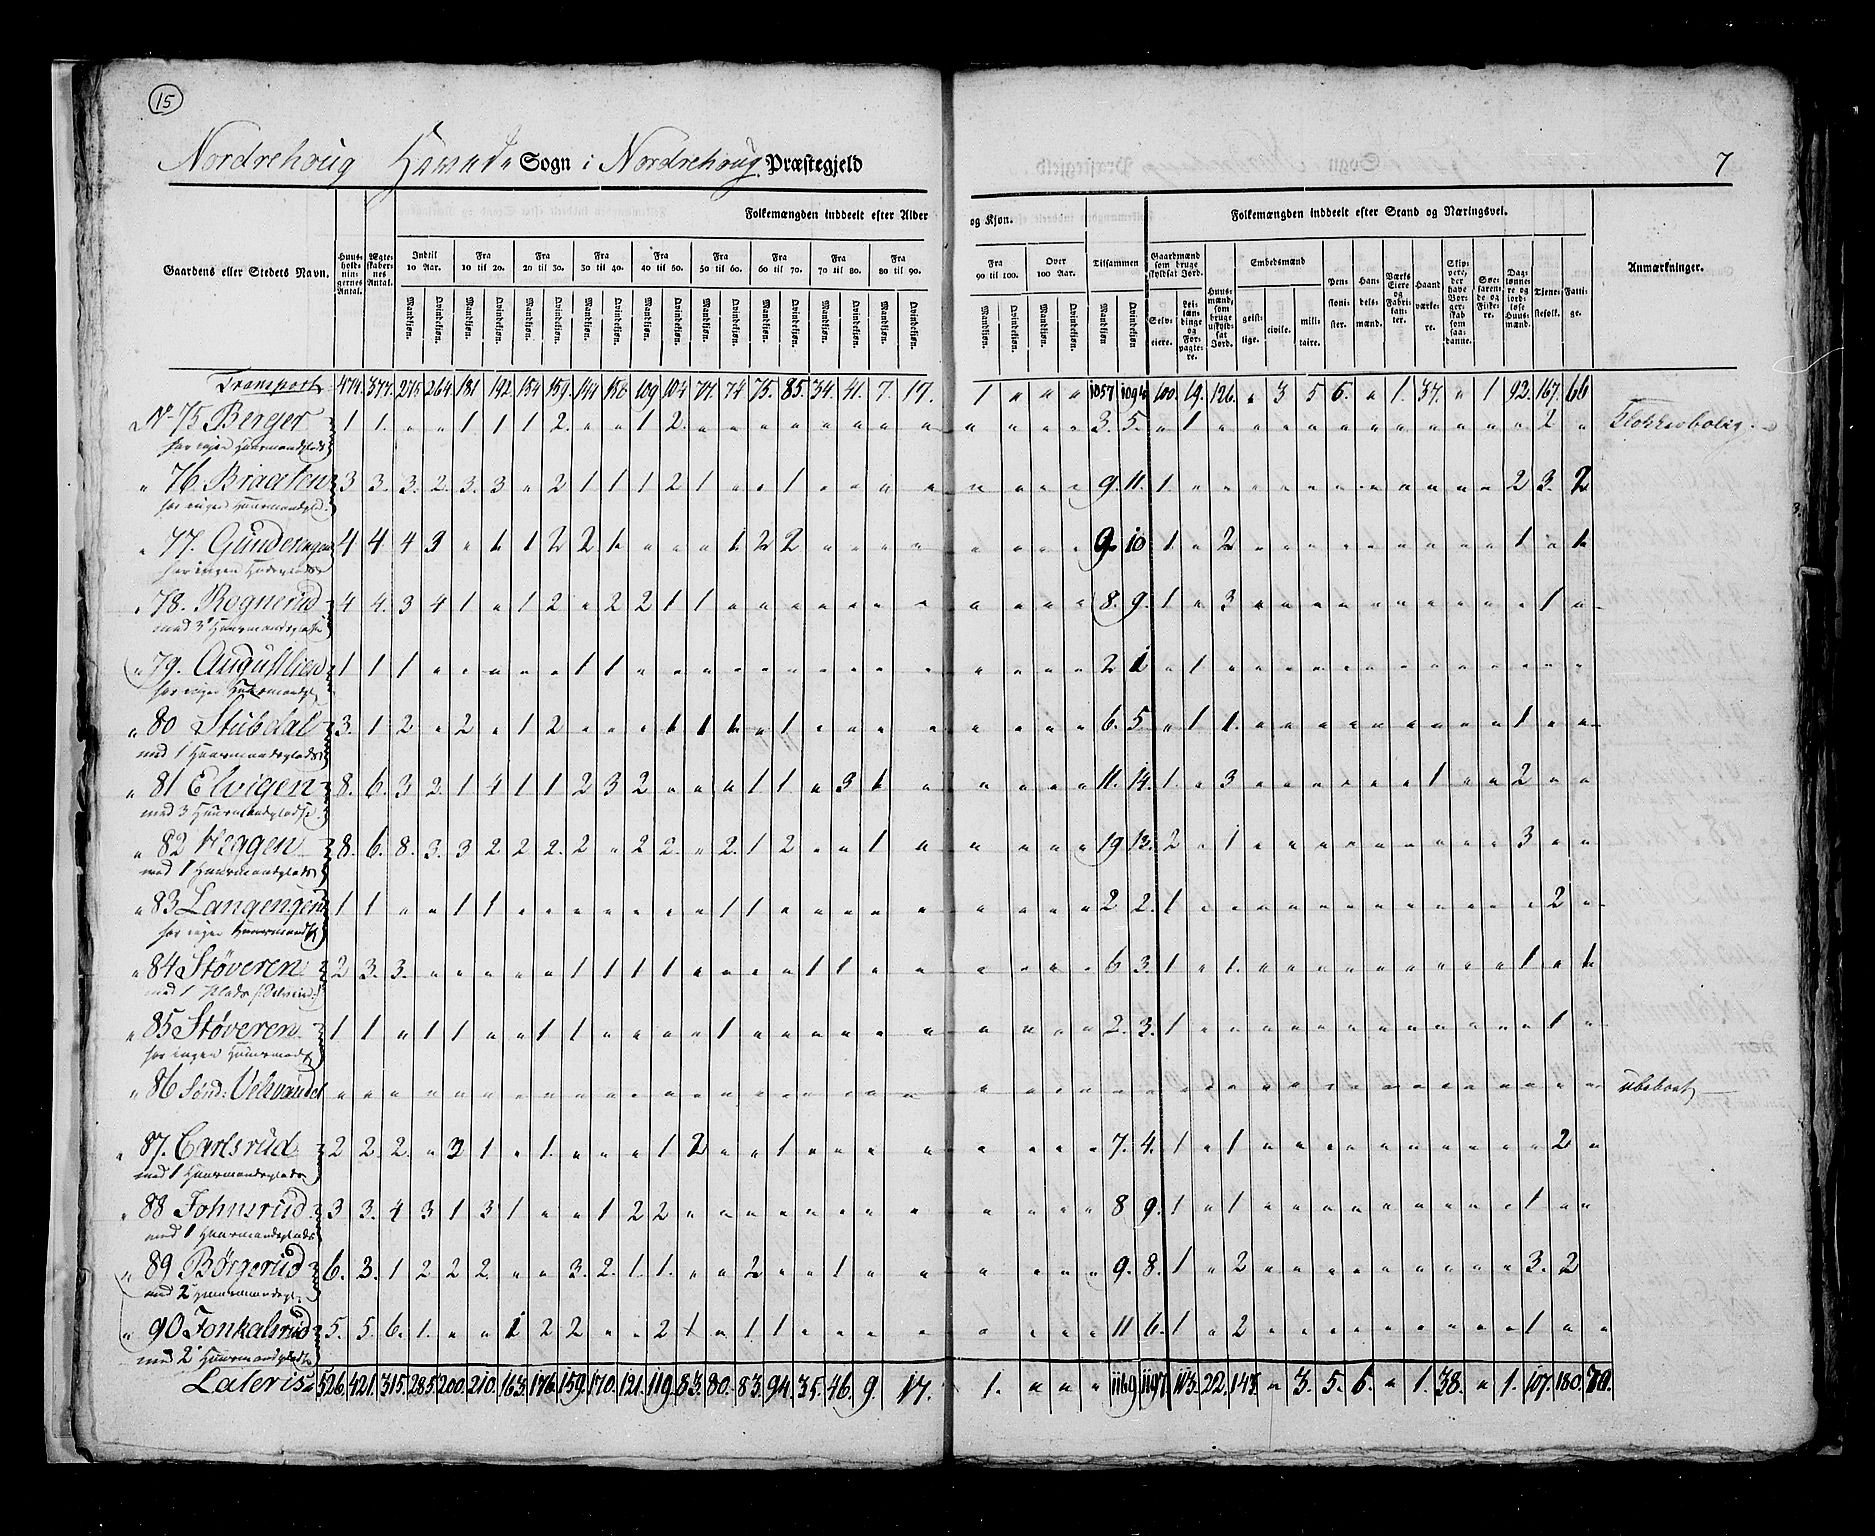 15
Nordrehoug Sogn i Nordrehoug Præstegjeld
7
Folkemængden inddeelt efter Alder og Kjøn.
Folkemængden inddeelt efter Stand og Næringsvei.
Gaardens eller Stedets Navn.
Huusholdningernes Antal.
Ægteskabernes Antal.
Indtil 10 Aar.
Fra 10 til 20.
Fra 20 til 30.
Fra 30 til 40.
Fra 40 til 50.
Fra 50 til 60.
Fra 60 til 70.
Fra 70 til 80.
Fra 80 til 90.
Fra 90 til 100.
Over 100 Aar.
Tilsammen
Mandkjøn. Qvindekjøn.
Gaardmænd som bruge skyldsat Jord.
Selveiere.
Leilændinge og Forpagtere.
Huusmænd, som bruge uskyldsat Jord.
Embedsmænd
geistlige.
civile.
militaire.
Pensionister.
Handelsmænd.
Værks Eiere og Fabrikanter.
Haandværkere.
Skippere, der have Borgerskab som saadanne.
Søefarende og Fiskere.
Daglønnere og jordløse Huusmænd.
Tjenestefolk.
Fattige.
Anmærkninger.
Transport 474. 377. 275 264. 181. 192. 154 159. 144 109 104 74 75. 85. 34. 41. 7. 17. 1 " " " 1057 1094 100. 19. 126. " 3 5 6. " 1. 37. " 1 92. 167. 66
No 75 Berger 1 1. " " 1 1 1 2. " " 1 2. " " " " " " " " " " " " 3. 5. " 1 " " " " " " " " " " " 2 "
har ingen Huusmandsplads
" 76. Braaten 3 3. 3. 2. 3. 3 " 2 1 1 1 2 1 " " 1 " " " " " " " " 9 11. 1. " " " " " " " " " " " 2 3. 2
har ingen
" 77. 4 4 4 3 " 1 1 2 2 1 " " " 1 2 2 " " " " " " " " 9 10 1 " 2 " " " " " " " " " 1 " 1
har ingen
" 78. Rognerud 4 4. 3 4 1 " 1 2 " 2 2 1 1 " " " " " " " " " " " 8. 9. 1 " 3 " " " " " " " " " " 1 "
med 3 Huusmandspladse
" 79. Augustlien 1 1 1 " " " " " 1 1 " " " " " " " " " " " " " " 2 1 " 1 " " " " " " " " " " " " "
har ingen
" 80 Stubdal 3. 1 2 " 2 " 1 2 " " " 1 1 1 " 1 " " " " " " " " 6. 5. " 1 1. " " " " " " " " " 1 " "
med 1 Huusmandsplads
" 81 Elvigen 8. 6. 3 2. 1 4 1 1 2 3 2 " " " 1 1 " 3 1 " " " " " 11. 14. 1. " 3 " " " " " " 1 " " 2 " "
med 3 Huusmandspladse
" 82 Heggen 8. 6. 8. 3. 3 2 2 2. 2 " 2 2. " 2. 1 2 " " 1 " " " " " 19 13. 2 " 1 " " " " " " " " " 3 " "
med 1 Huusmandsplads
" 83 Langengen 1 1 " " 1 1 " " " " " " " 1 1 " " " " " " " " " 2 2. 1 " " " " " " " " " " " " 2 "
har ingen
" 84 Støveren 2 3. 3. " " " " " 1 1 1 1 " " " 1 1 " " " " " " " 6 3. 1 " 1. " " " " " " " " " 1 " 1
med 1 Plads
" 85 Støveren 1 1 " 1 1 " 1 1 " " " " 1 " " " " " " " " " " " 2. 3. 1 " " " " " " " " " " " " 1 "
har ingen
" 86 Sønd:
ubeboet
" 87. Carlsrud 2 2. 2. " 2 1 " 1. " " " 1 2 " " 1 " " " " " " " " 7. 4. 1 " 1 " " " " " " " " " " 2 "
med 1 Huusmandsplads
" 88 Johnsrud 3 3. 4 3 1 3 1 " " 1 2 2 " " " " " " " " " " " " 8 9. 1 " 1 " " " " " " " " " 1 " "
med 1 Huusmandsplads
" 89 Børgerud 6. 3. 1 2 2 2. " " 3. 2. 1. 1. " " 2 " " 1 " " " " " " 9. 8. 1 " 2 " " " " " " " " " 3. 2
med 2
" 90 Jonkalsrud 5. 5. 6. 1. " " 1 2 2 " " 2 1 " 1 1 " " " " " " " " 11 6. 1 " 2 " " " " " " " " " 1 " "
med 2 Huusmandspladse
Lateris 526. 421. 315. 285. 200. 210. 163. 176. 159. 170. 121. 119. 83. 80. 83. 94. 35. 46. 9. 17. 1. " " " 1169 1197 113. 22. 147. " 3. 5. 6. " 1. 38. " 1. 107. 180. 70.